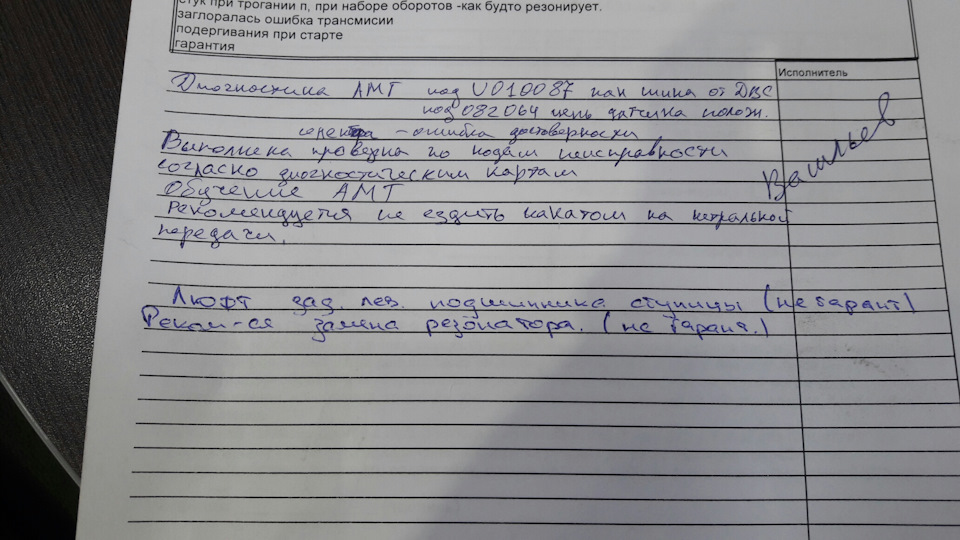 стук при трогании п, при наборе оборотов -как будто резонирует.
заглоралась ошибка трансмисии
подергивания при старте
гарантия
Исполнитель
Диогностика АМТ код U010087 кан шина от ДВС
код 082064 цепь датчика полож.
– ошибка достоверности
Выполнена проверка по кодам неисправности
согласно диогностическим картам
Обучение АМТ
Рекомендуется не ездить накатом на нетральной
передачи.
Васильев
Люфт зад. лев. подшипника ступицы (не гарант)
Реком-ся замена резонатора. (не гарант.)